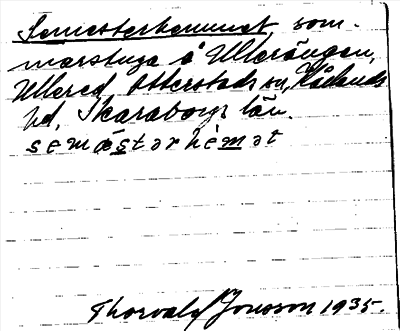 Semesterhemmet som-
marstuga å Ullerängen,
Ullered, Otterstads sn, Kållands
hd, Skaraborgs län.
semæstərhèmət
Thorvald Jonsson 1935.